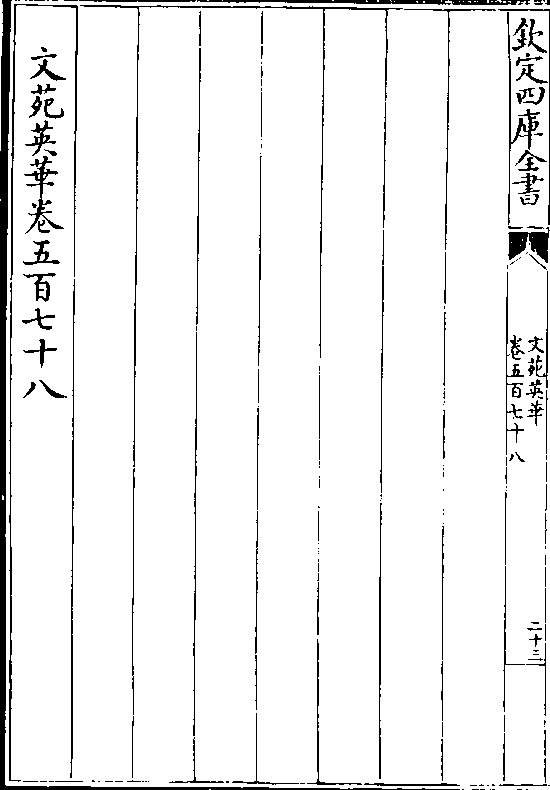 欽定四庫全書
文苑英華
卷五百七十八
二十三
文苑英華卷五百七十八